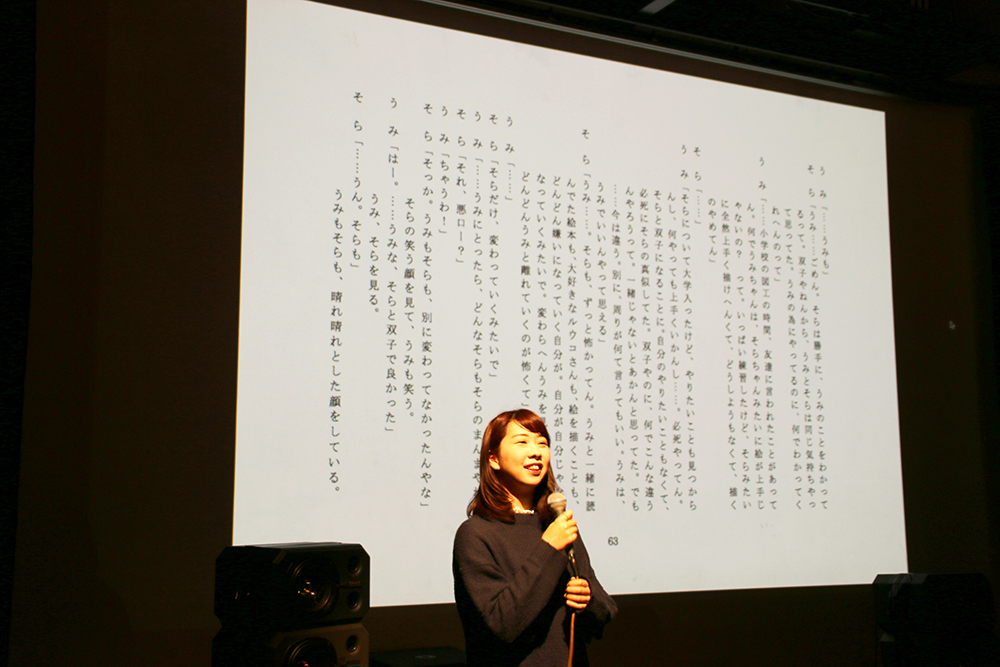 うみ「……うみも」
そら「うみ……ごめん。そらは勝手に、うみのことをわかって
るって。双子やねんから、うみとそらは同じ気持ちやっ
て思ってた。うみの為にやってるのに、何でわかってく
れへんのって」
うみ「……小学校の図工の時間、友達に言われたことがあって
ん。何でうみちゃんは、そらちゃんみたいに絵が上手じ
ゃないの？ って。いっぱい練習したけど、そらみたい
に全然上手く描けへんくて、どうしようもなくて、描く
のやめてん」
そら「……」
うみ「そらについて大学入ったけど、やりたいことも見つから
んし、何やっても上手くいかんし……。必死やってん。
そらと双子になることに。自分のやりたいこともなくて、
必死にそらの真似してた。双子やのに、何でこんな違う
んやろうって。一緒じゃないとあかんと思ってた。でも
……今は違う。別に、周りが何て言うてもいい。うみは、
うみでいいんやって思える」
そら「うみ……。そらも、ずっと怖かってん。うみと一緒に読
んでた絵本も、大好きなルウコさんも、絵を描くことも、
どんどん嫌いになっていく自分が。自分が自分じゃ
なっていくみたいで。変わらへんうみを
どんどんうみと離れていくのが怖くて」
うみ「……」
そら「そらだけ、変わっていくみたいで」
うみ「……うみにとったら、どんなそらもそらのまんまや
そら「それ、悪口ー？」
うみ「ちゃうわ！」
そら「そっか。うみもそらも、別に変わってなかったんやな」
そらの笑う顔を見て、うみも笑う。
うみ「はー。……うみな、そらと双子で良かった」
うみ、そらを見る。
そら「……うん。そらも」
うみもそらも、晴れ晴れとした顔をしている。
63